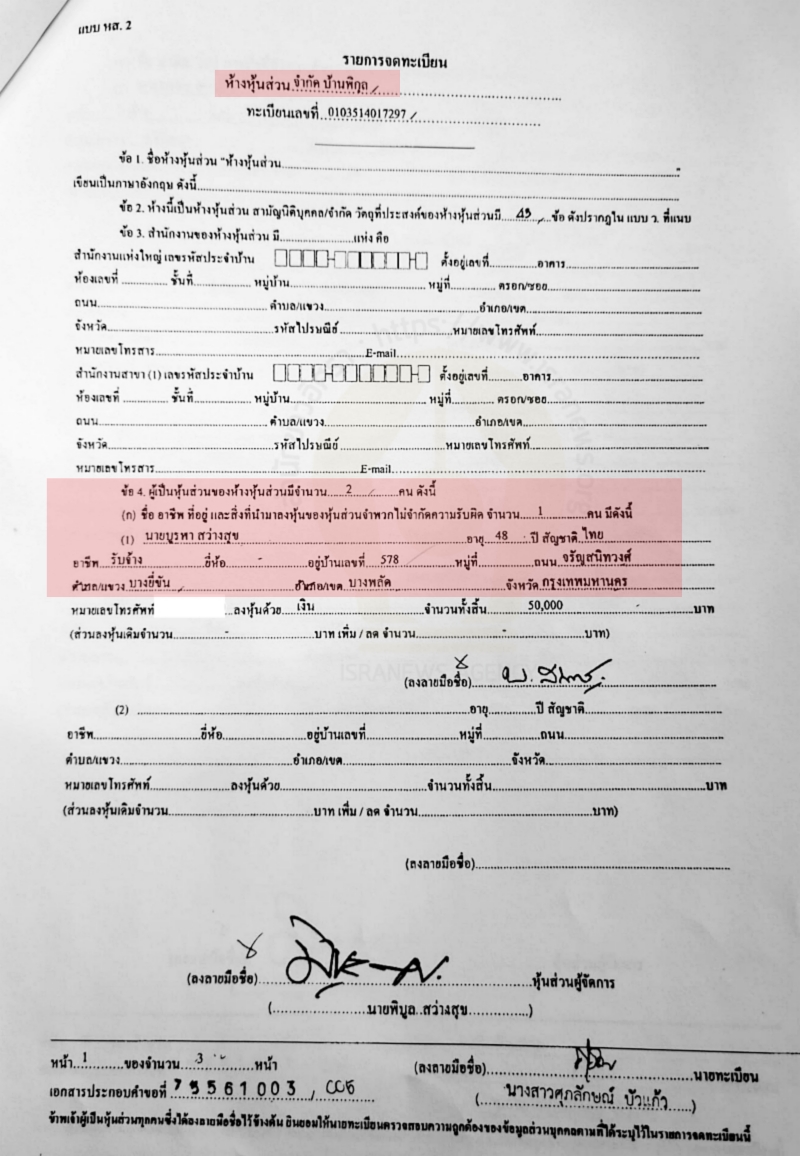 แบบ หส. 2
รายการจดทะเบียน
ห้างหุ้นส่วน จำกัด บ้านพิกุล
ทะเบียนเลขที่ 0103514017297
ข้อ 1. ชื่อห้างหุ้นส่วน "ห้างหุ้นส่วน"
เขียนเป็นภาษาอังกฤษ ดังนี้
ข้อ 2. ห้างนี้เป็นห้างหุ้นส่วน สามัญนิติบุคคล/จำกัด วัตถุที่ประสงค์ของห้างหุ้นส่วนมี 43 ข้อ ดังปรากฏใน แบบ ว. ที่แนบ
ข้อ 3. สำนักงานของห้างหุ้นส่วน มี แห่ง คือ
สำนักงานแห่งใหญ่ เลขรหัสประจำบ้าน ตั้งอยู่เลขที่ อาคาร
ห้องเลขที่ ชั้นที่ หมู่บ้าน หมู่ที่ ตรอก/ซอย
ถนน ตำบล/แขวง อำเภอ/เขต
จังหวัด รหัสไปรษณีย์ หมายเลขโทรศัพท์
หมายเลขโทรสาร E-mail
สำนักงานสาขา (1) เลขรหัสประจำบ้าน ตั้งอยู่เลขที่ อาคาร
ห้องเลขที่ ชั้นที่ หมู่บ้าน หมู่ที่ ตรอก/ซอย
ถนน ตำบล/แขวง อำเภอ/เขต
จังหวัด รหัสไปรษณีย์ หมายเลขโทรศัพท์
หมายเลขโทรสาร E-mail
ข้อ 4. ผู้เป็นหุ้นส่วนของห้างหุ้นส่วนมีจำนวน 2 คน ดังนี้
(ก) ชื่อ อาชีพ ที่อยู่ และสิ่งที่นำมาลงหุ้นของหุ้นส่วนจำพวกไม่จำกัดความรับผิด จำนวน 1 คน มีดังนี้
(1) นายบูรพา สว่างสุข อายุ 48 ปี สัญชาติ ไทย
อาชีพ รับจ้าง ยี่ห้อ - อยู่บ้านเลขที่ 578 หมู่ที่ ถนน จรัญสนิทวงศ์
ตำบล/แขวง บางยี่ขัน อำเภอ/เขต บางพลัด จังหวัด กรุงเทพมหานคร
หมายเลขโทรศัพท์ ลงหุ้นด้วย เงิน จำนวนทั้งสิ้น 50,000 บาท
(ส่วนลงหุ้นเดิมจำนวน - บาท เพิ่ม / ลด จำนวน - บาท)
ISRANEWS AGE
(ลงลายมือชื่อ)
(2) อายุ ปี สัญชาติ
อาชีพ ยี่ห้อ อยู่บ้านเลขที่ หมู่ที่ ถนน
ตำบล/แขวง อำเภอ/เขต จังหวัด
หมายเลขโทรศัพท์ ลงหุ้นด้วย จำนวนทั้งสิ้น บาท
(ส่วนลงหุ้นเดิมจำนวน บาท เพิ่ม / ลด จำนวน บาท)
(ลงลายมือชื่อ)
(ลงลายมือชื่อ) หุ้นส่วนผู้จัดการ
( นายพิบูล สว่างสุข )
หน้า 1 ของจำนวน 3 หน้า (ลงลายมือชื่อ) นายทะเบียน
เอกสารประกอบคำขอที่ 75561003 / 006 ( นางสาวศุภลักษณ์ บัวแก้ว )
ข้าพเจ้าผู้เป็นหุ้นส่วนทุกคนซึ่งได้ลงลายมือชื่อไว้ข้างต้น ยินยอมให้นายทะเบียนตรวจสอบความถูกต้องของข้อมูลส่วนบุคคลตามที่ได้ระบุไว้ในรายการจดทะเบียนนี้